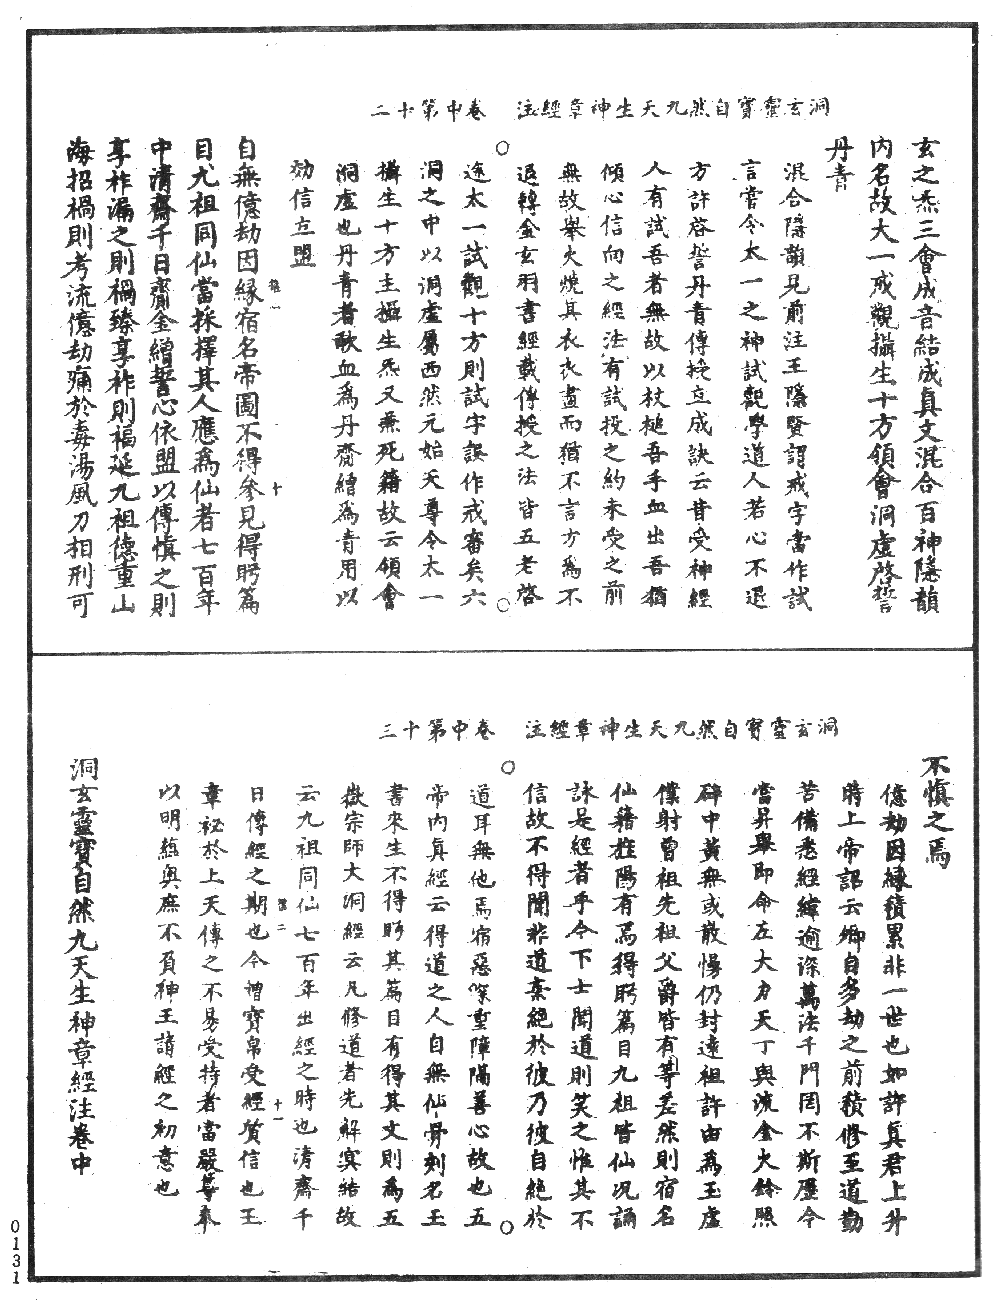 洞玄靈寶自然九天生神章經註　卷中第十二
玄之炁三會成音結成真文混合百神隱韻
内名故大一戒觀攝生十方領會洞虛啓誓
丹青
混合隱韻見前注王隱賢謂戒字當作試
言嘗令太一之神試觀學道人若心不退
方許啓誓丹青傳授立成訣云昔受神經
人有試吾者無故以杖槌吾手血出吾猶
傾心信向之經法有試投之約未受之前
無故舉火燒其衣衣盡而猶不言方爲不
退轉金玄羽書經載傳授之法皆五老啓
途太一試觀十方則試字誤作戒審矣六
洞之中以洞虛屬西然元始天尊令太一
攝生十方主攝生炁又兼死籍故云領會
洞虛也丹青者歃血爲丹齋繒爲青用以
効信立盟
自無億劫因緣宿名帝圖不得參見得眄篇
目九祖同仙當採擇其人應爲仙者七百年
中清齋千日齎金繒誓心依盟以傳慎之則
享祚漏之則禍臻享祚則福延九祖德重山
海招禍則考流億劫痛於毒湯風刀相刑可
洞玄靈寶自然九天生神章經註　卷中第十三
不慎之焉
億劫因緣積累非一世也如許真君上升
時上帝詔云卿自多劫之前積修至道勤
苦備悉經緯逾深萬法千門罔不斯歷今
當昇舉即命左大力天丁與流金火鈴照
辟中黄無或散慢仍封遠祖許由爲玉虛
僕射曾祖先祖父爵皆有等差然則宿名
仙籍在陽有焉得眄篇目九祖皆仙況誦
詠是經者乎今下士聞道則笑之惟其不
信故不得聞非道棄絕於彼乃彼自絕於
道耳無他焉宿惡深重障隔善心故也五
帝内真經云得道之人自無仙骨刻名玉
書來生不得眄其篇目有得其文則爲五
嶽宗師大洞經云凡修道者先解㝠結故
云九祖同仙七百年出經之時也清齋千
日傳經之期也今䞇寶帛受經質信也玉
章祕於上天傳之不易受持者當嚴尊奉
以明藴奥庶不負神王請經之初意也
洞玄靈寶自然九天生神章經註卷中
0131